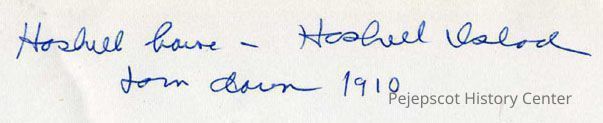 Haskell house – Haskell Island
torn down 1910
Pejepscot History Center